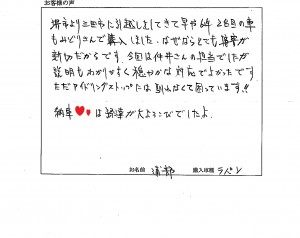 お客様の声
堺市より三田市に引越しをしてきて早や6年 2台目の車
もみどりさんで購入しました。なぜならとても接客が
親切だからです。今回は仲井さんの担当でしたが
説明もわかりやすく穏やかな対応でよかったです
ただアイドリングストップには馴れなくて困っています!!
納車♥♥は家族が大よろこびでしたよ。
お名前 購入車種 ラパン